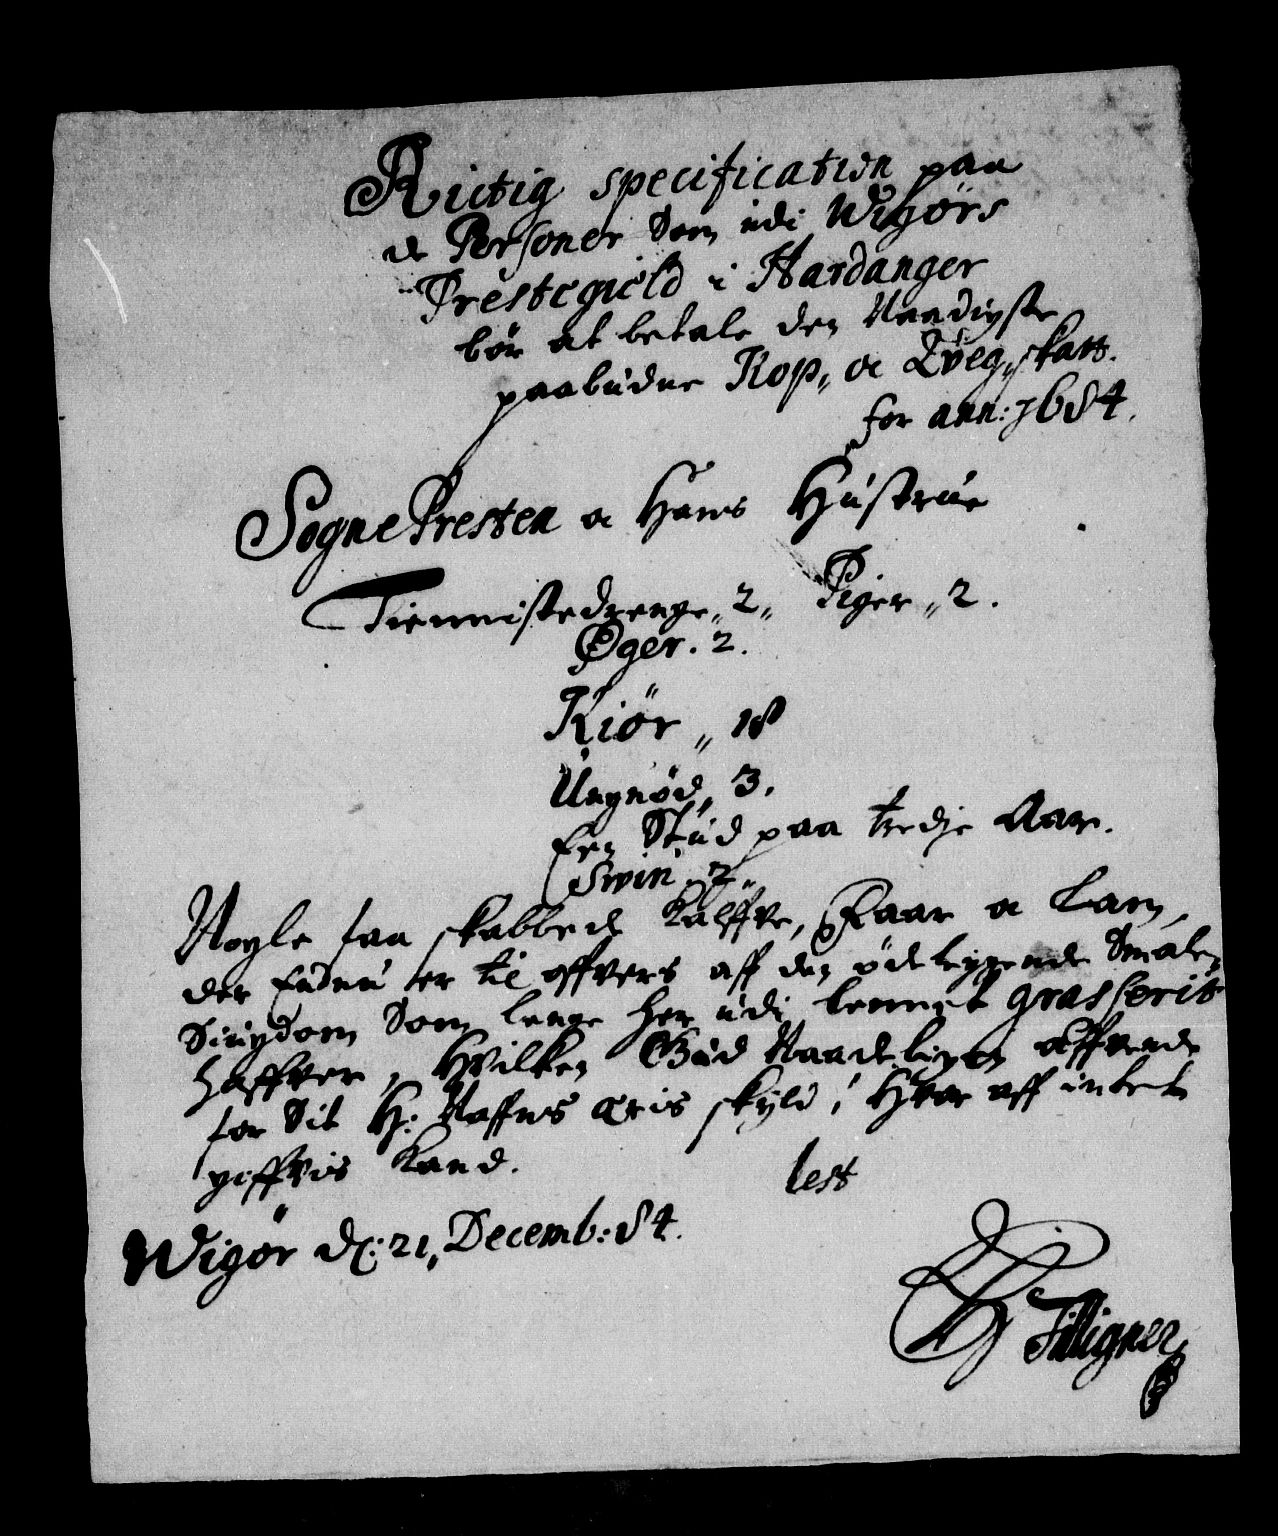 Rictig specification paa
de Personer Som udi Wigörs
Prestegield i Hardanger
bör at betale den Naadigste
paabudne Kop,, oc Qveg,, skatt.
for ann: 1684.
SognePresten oc Hans Hustrue
Tiennistedrenge,, 2,, Piger,, 2.
Øger. 2.
Kiör,, 18
Ungnöd,, 3.
Een Stud paa tredje Aar.
Swin,, 2,,
Nogle faa skabbede Kalffve, Faar oc Lam,
der Endnu er til offvers aff den ödeleggende Smale,,
Siugdom Som lenge her udi lennet grasserit
haffver, Hvilken Gud Naadeligen affvende
for Sit H: Naffns Æris skyld, Hvor aff intet
giffvis Kand. lest
Wigör d: 21,, Decemb: 84.
Filligner